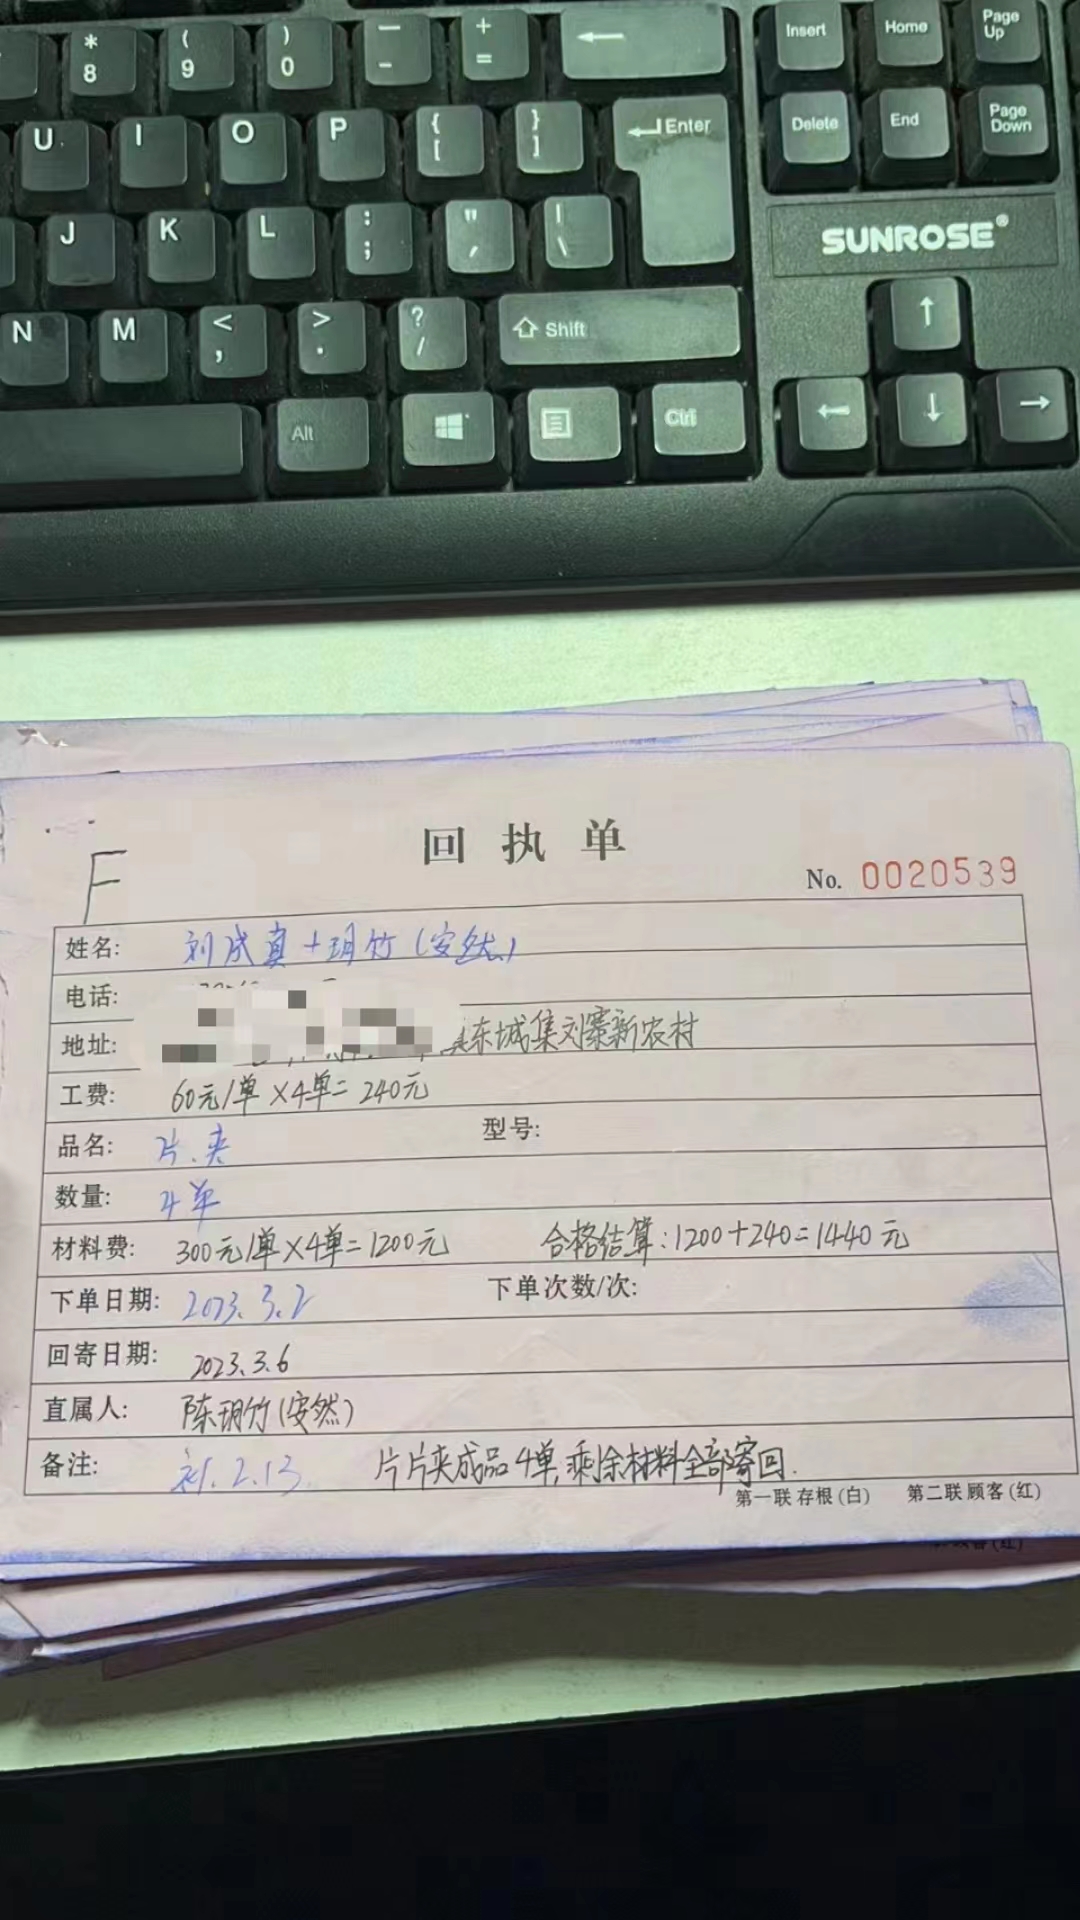 * ( ) — +
8 9 0 - =
Insert Home Page Up
U I O P { [ } ] Enter
Delete End Page Down
J K L : ; " ' | \
SUNROSE®
N M < , > . ? / Shift
Alt Ctrl
F
回执单
No. 0020539
姓名: 刘成真+玥竹(安然)
电话:
地址: 东城集刘寨新农村
工费: 60元/单×4单=240元
品名: 片.夹 型号:
数量: 4单
材料费: 300元/单×4单=1200元 合格结算:1200+240=1440元
下单日期: 2023.3.2 下单次数/次:
回寄日期: 2023.3.6
直属人: 陈玥竹(安然)
备注: 2.13. 片片夹成品4单,剩余材料全部寄回.
第一联 存根(白) 第二联 顾客(红)